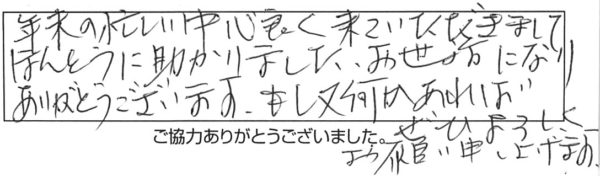 年末の忙しい中心良く来ていただきまして
ほんとうに助かりました、お世話になり
ありがとうございます。もし又何かあれば
ぜひよろしく
ご協力ありがとうございました。
お願い申し上げます、